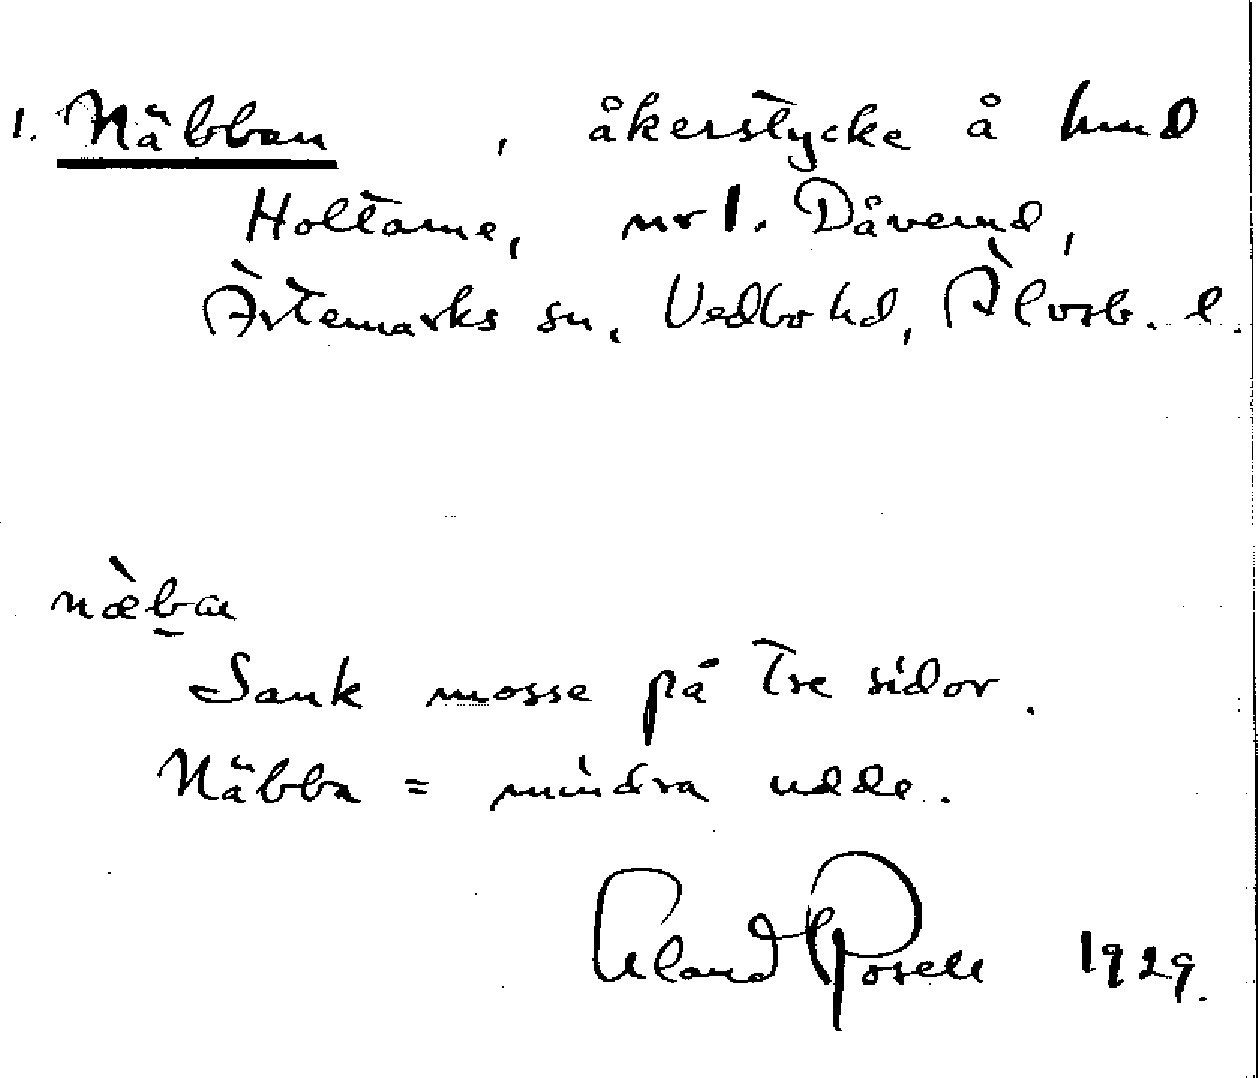 1. Näbban , åkerstycke å hmd
Holtarne, nr 1. Dåverud,
Ärtemarks sn, Vedbo hd, Älvsb. l.
næ̀ban
Sank mosse på tre sidor.
Näbba = mindre udde.
Erland Rosell 1929.